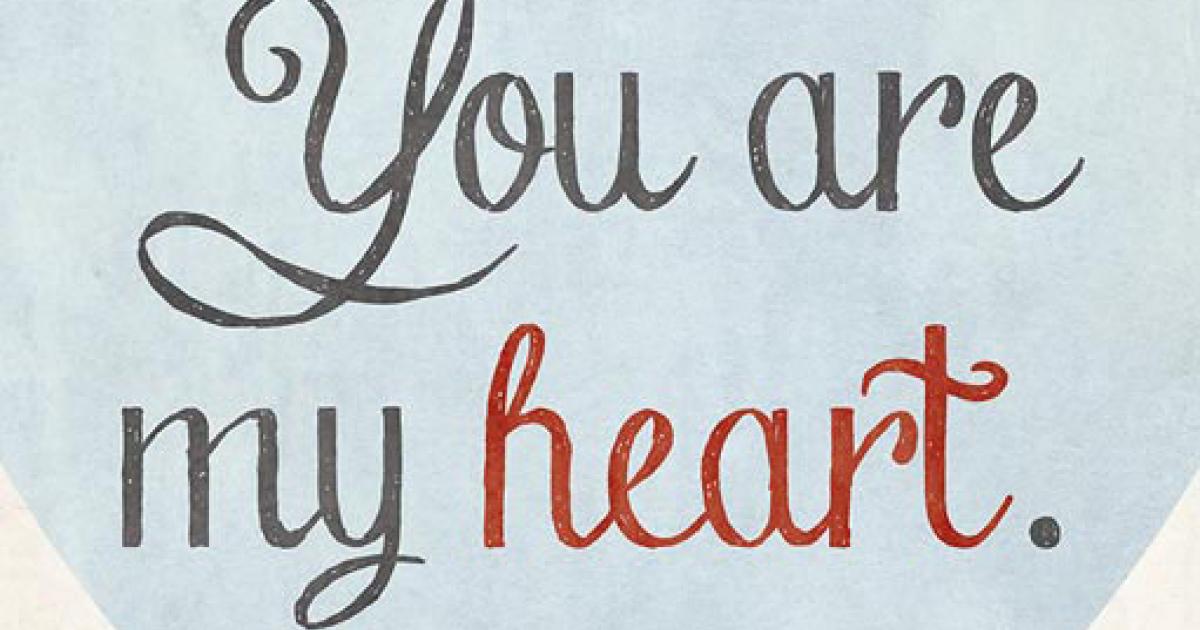 You are
my heart.